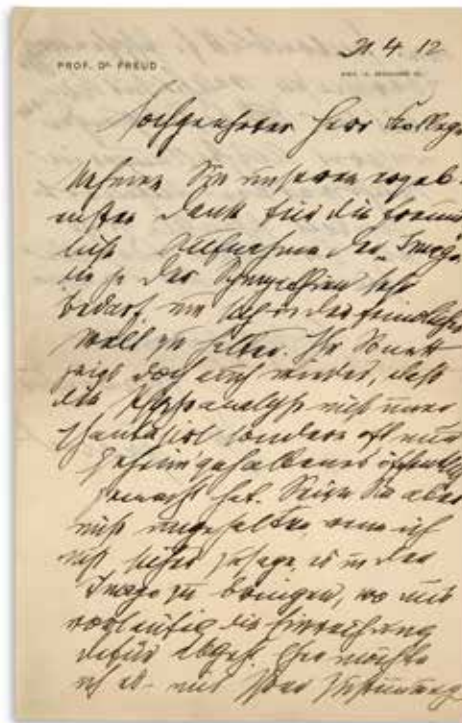 PROF. DR. FREUD.
21.4.12
WIEN, IX. BERGGASSE 19.
Hochgeehrter Herr Kollege
Nehmen Sie unseren ergeb-
ensten Dank für die freund-
liche Aufnahme der „Imago
die ja der Sympathien sehr
bedarf, um sich in der feindlichen
Welt zu halten. Ihr Sonett
zeigt doch auch wieder, daß
die Psychoanalyse nicht immer
phantasirt sondern oft nur
Geheimgehaltenes öffentlich
gemacht hat. Seien Sie aber
nicht ungehalten, wenn ich
nicht sicher zusage, es in der
Imago zu bringen, wo mir
vorläufig die
dafür abgeht. Gern möchte
ich es – mit Ihrer Zustimmung